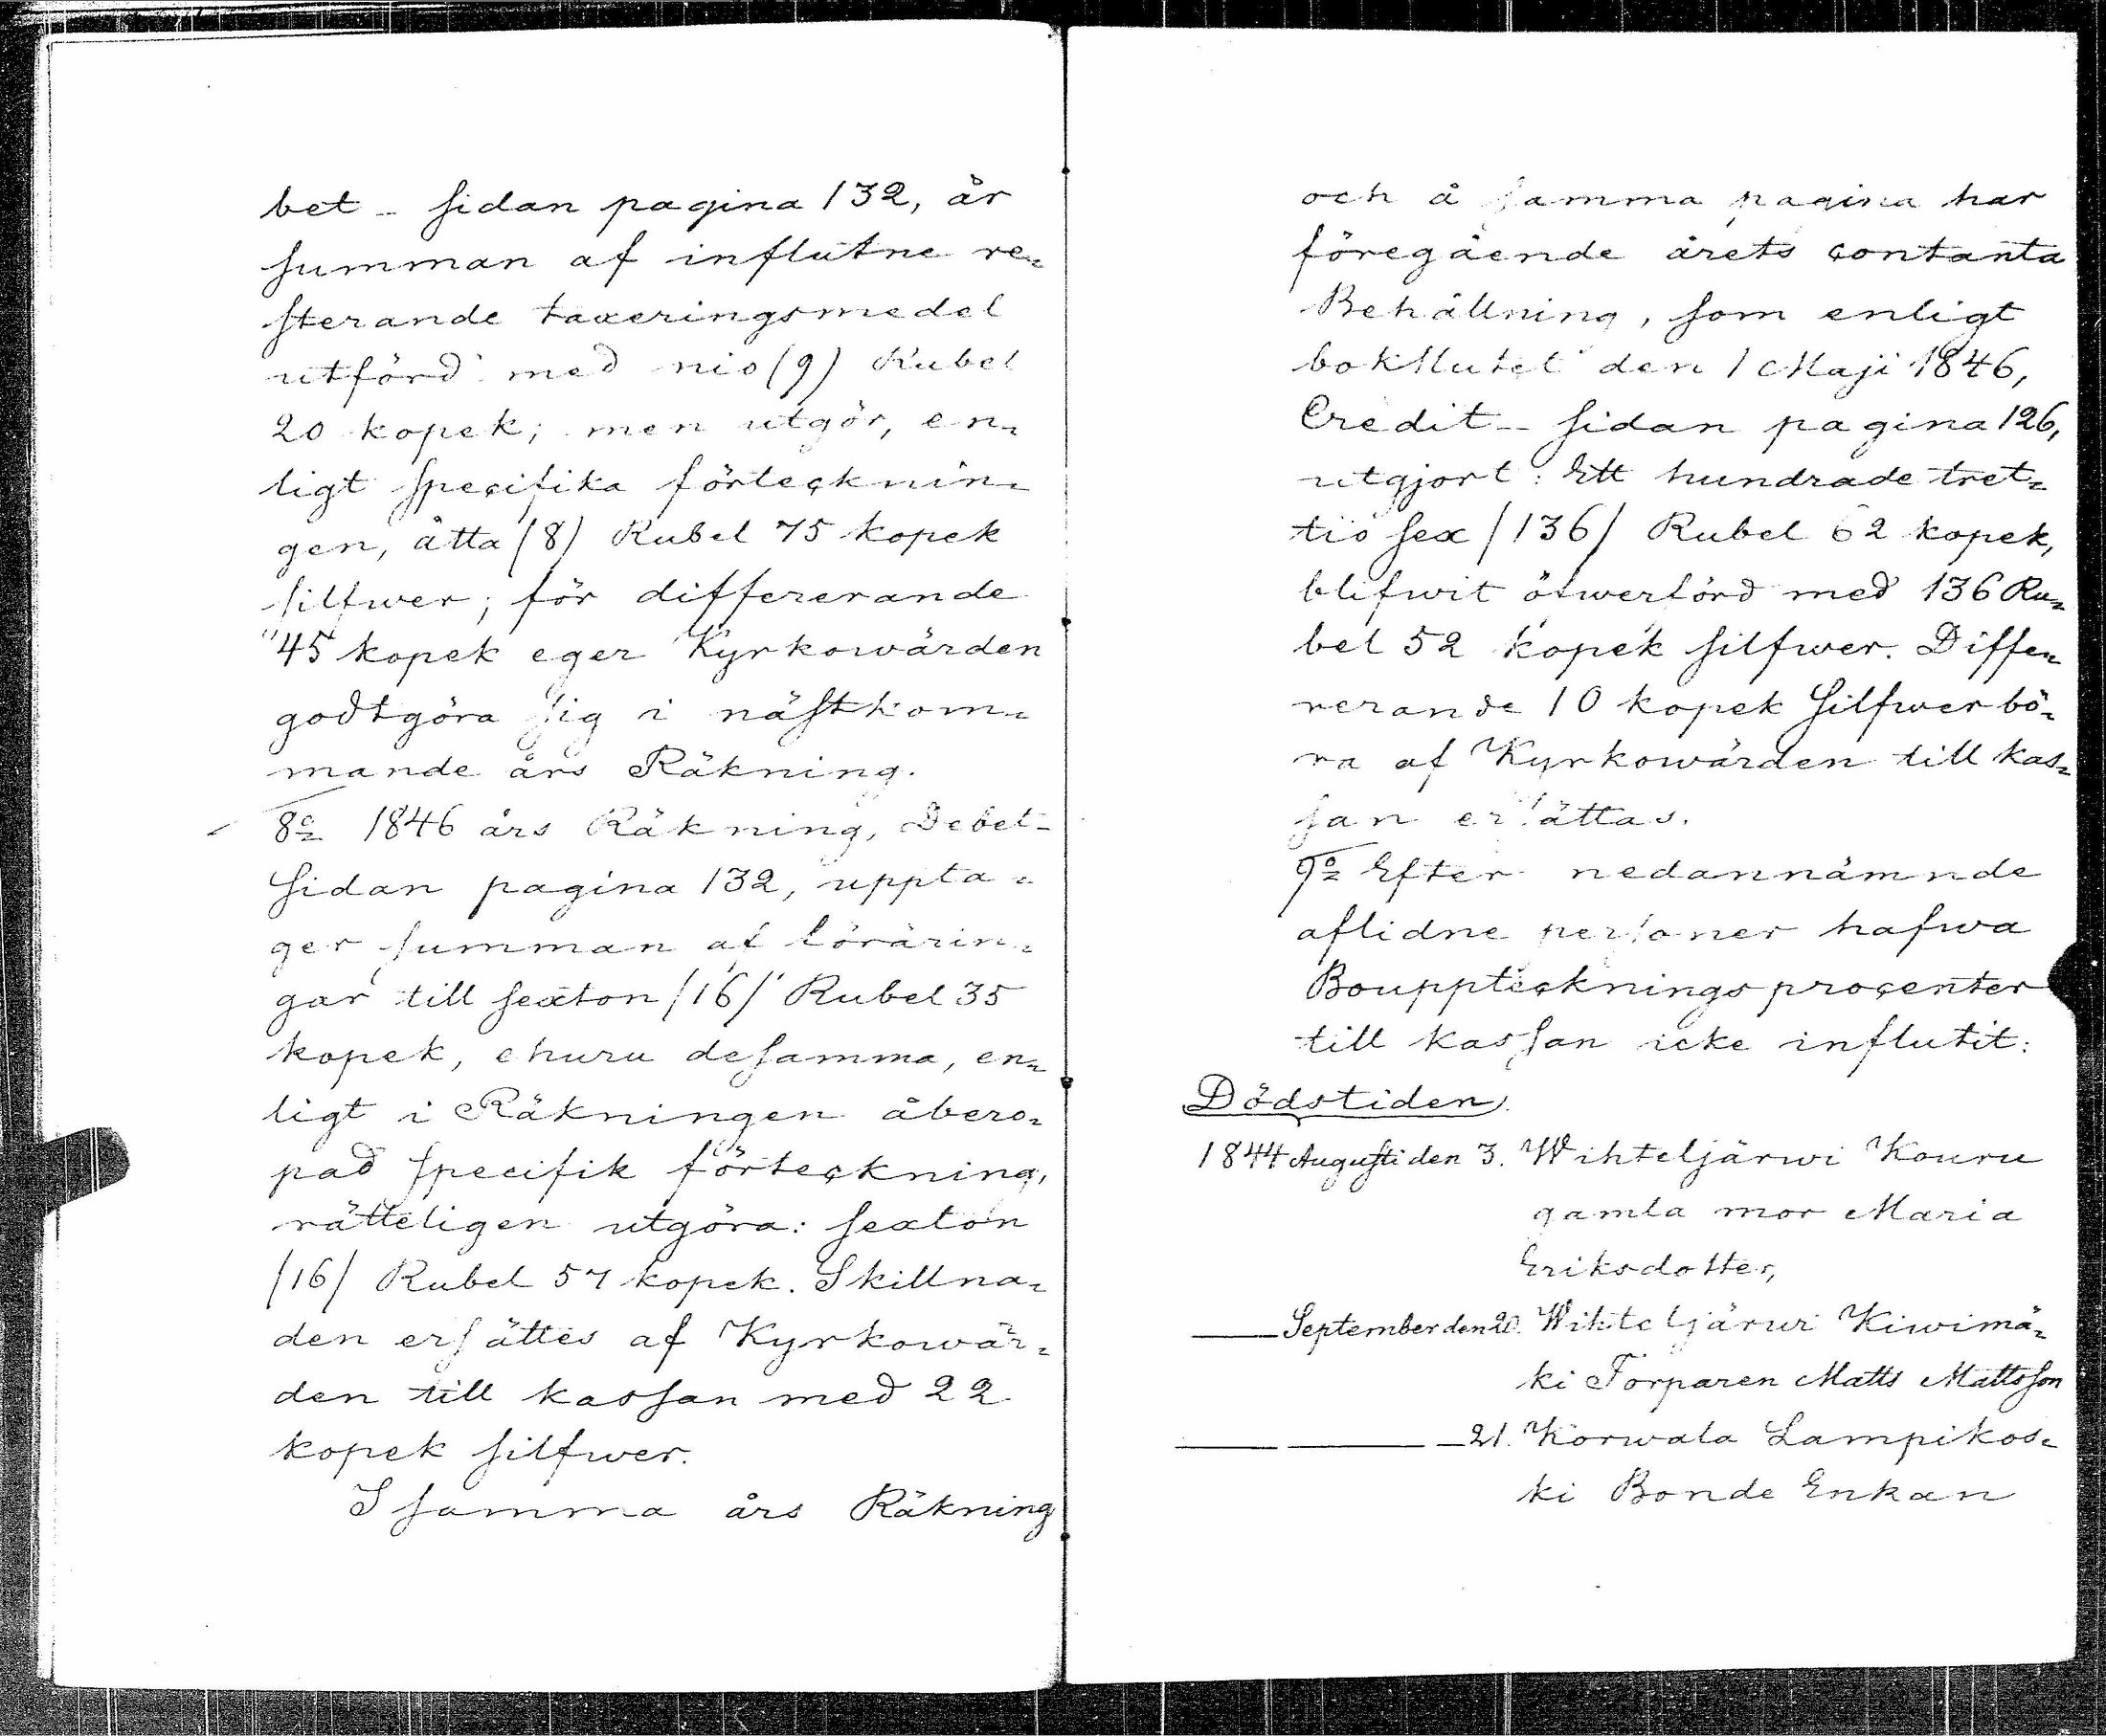 bet - sidan pagina 132, är
summan af influtne re=
sterande taxeringsmedel
utförd med nio (9) Rubel
20 kopek; men utgör, en=
ligt specifika förtecknin=
gen, åtta (8) Rubel 75 kopek
silfwer; för differerande
"45 kopek eger Kyrkowärden
godtgöra sig i nästkom=
mande års Räkning.
8o= 1846 års Räkning, Debet-
sidan pagina 132, uppta=
ger summan af förärin=
gar till sexton (16) Rubel 35
kopek, ehuru desamma, en=
ligt i Räkningen åbero=
pad specifik förteckning,
rätteligen utgöra: sexton
(16) Rubel 57 kopek. Skillna=
den ersättes af Kyrkowär=
den till kassan med 22
kopek silfwer.
I samma års Räkning
och å samma pagina har
föregående årets contanta
Behållning, som enligt
bokslutet den 1 Maji 1846,
Credit - sidan pagina 126,
utgjort: Ett hundrade tret=
tio sex (136) Rubel 62 kopek,
blifwit öfwerförd med 136 Ru=
bel 52 kopek silfwer. Diffe=
rerande 10 kopek Silfwer bö=
ra af Kyrkowärden till kas=
san ersättas.
9o= Efter nedannämnde
aflidne personer hafwa
Bouppteckningsprocenter
till kassan icke influtit:
Dödstiden.
1844 Augusti den 3. Wihteljärwi Kouru
gamla mor Maria
Eriksdotter,
— September den 20. Wihteljärwi Kiwimä=
ki Torparen Matts Mattsson
— — 21. Korwala Lampikos=
ki Bonde Enkan